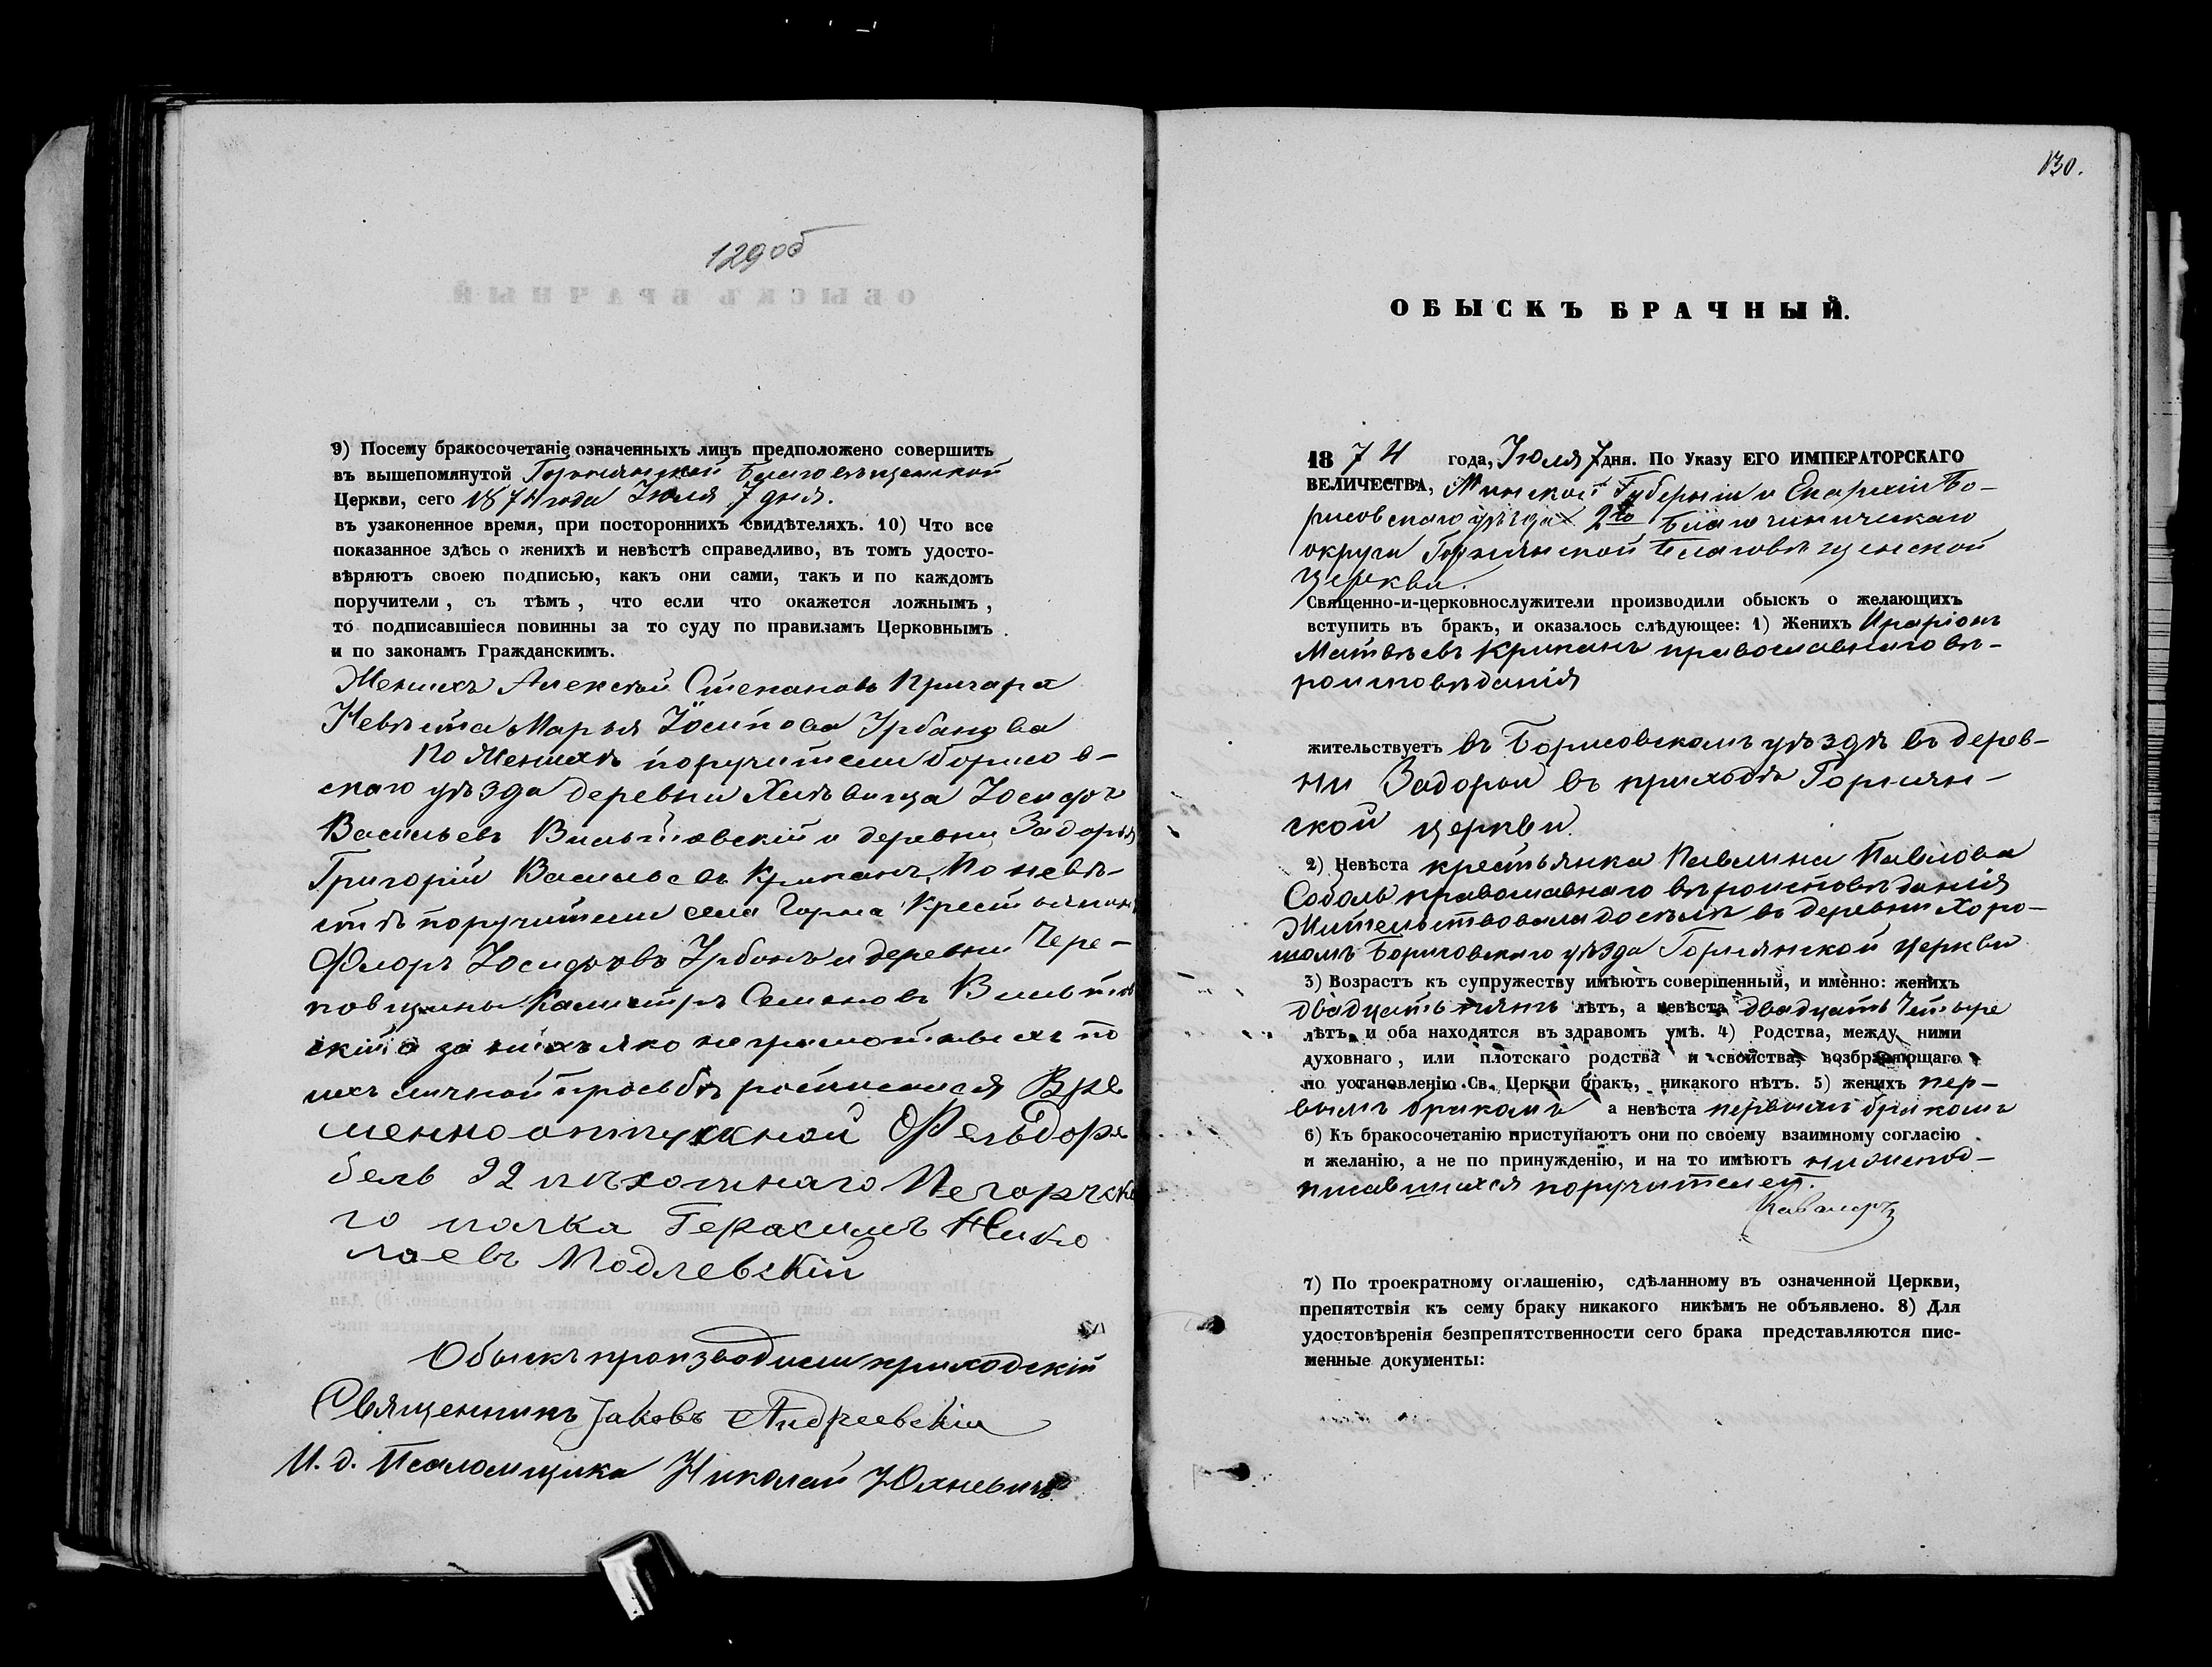 129об
9) Посему бракосочетаніе означенныхъ лицъ предположено совершить
въ вышепомянутой Горнянской Благовѣщенской
Церкви, сего 1874 года Іюля 7 дня.
въ узаконенное время, при постороннихъ свидѣтеляхъ. 10) Что все
показанное здѣсь о женихѣ и невѣстѣ справедливо, въ томъ удосто-
вѣряютъ своею подписью, какъ они сами, такъ и по каждомъ
поручители, съ тѣмъ, что если что окажется ложнымъ,
то подписавшіеся повинны за то суду по правиламъ Церковнымъ
и по законамъ Гражданскимъ.
Женихъ Алексѣй Степановъ
Невѣста Марья Іосипова Урбанова
По Женихѣ поручители Борисов-
скаго уѣзда деревни Іосифъ
Васильевъ и деревни Задорья
Григорій Васильевъ Крипанъ, По невѣ-
стѣ поручители села Горна Крестьянинъ
Флоръ Іосифовъ Урбанъ и деревни Чере-
повщины Калистръ Семеновъ
скій а за нихъ яко неграмотныхъ по
ихъ личной прозьбѣ росписался Вре
менноотпускной Фельдфе
бель 92 пѣхотнаго Печорска
го полка Герасимъ Нико
лаевъ Подлевскій
Обыскъ производили приходскій
Священникъ Іаковъ Андреевскій
И. д. Псаломщика Николай Юхневичъ
130.
ОБЫСКЪ БРАЧНЫЙ.
1874 года, Іюля 7 дня. По Указу ЕГО ИМПЕРАТОРСКАГО
ВЕЛИЧЕСТВА, Минской Губерніи и Епархіи Бо-
рисовскаго уѣзда 2го Благочинническаго
округа Горнянской Благовѣщенской
церкви.
Священно-и-церковнослужители производили обыскъ о желающихъ
вступить въ бракъ, и оказалось слѣдующее: 1) Женихъ Иларіонъ
Матвѣевъ Крипанъ православнаго вѣ-
роисповѣданія
жительствуетъ въ Борисовскомъ уѣздѣ въ дерев-
ни Задорьи въ приходѣ Горнян-
ской церкви.
2) Невѣста крестьянка Павлина Павлова
Соболь православнаго вѣроисповѣданія
Жительствовала доселѣ въ деревни Хоро-
шомъ Борисовскаго уѣзда Горнянской церкви
3) Возрастъ къ супружеству имѣютъ совершенный, и именно: женихъ
двадцать пять лѣтъ, а невѣста двадцать Четыре
лѣтъ, и оба находятся въ здравомъ умѣ. 4) Родства, между ними
духовнаго, или плотскаго родства и свойства, возбраняющаго
по установленію Св. Церкви бракъ, никакого нѣтъ. 5) женихъ пер-
вымъ бракомъ а невѣста первымъ бракомъ
6) Къ бракосочетанію приступаютъ они по своему взаимному согласію
и желанію, а не по принужденію, и на то имѣютъ нижепод-
писавшихся поручителей.
7) По троекратному оглашенію, сдѣланному въ означенной Церкви,
препятствія къ сему браку никакого никѣмъ не объявлено. 8) Для
удостовѣренія безпрепятственности сего брака представляются пис-
менные документы: